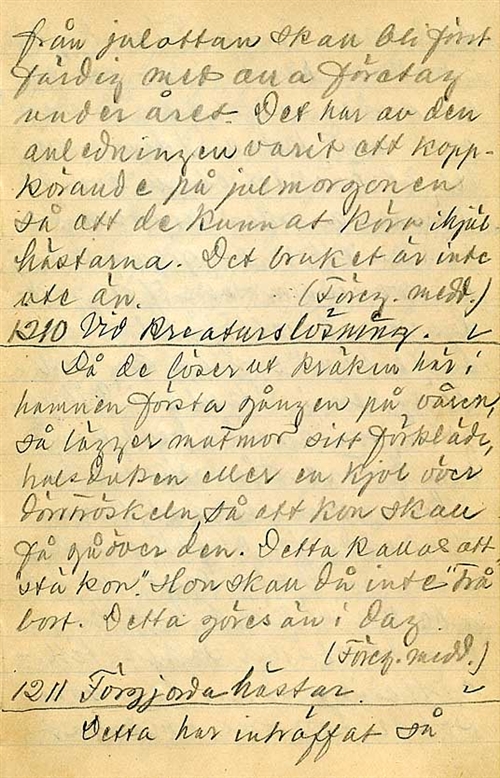 från julottan skall bli först
färdig med alla företag
under året. Det har av den
anledningen varit ett kapp-
körande på julmorgonen
så att de kunnat köra ihjäl
hästarna. Det bruket är inte
ute än. (Föreg. medd.)
1210 Vid kreaturslösning.
Då de löser ut kräken här i
hamnen första gången på våren,
så lägger matmor sitt förkläde,
halsduken eller en kjol över
dörrtröskeln, så att kon skall
få gå över den. Detta kallas att
"stå kon". Hon skall då inte "trå"
bort. Detta göres än i dag.
(Föreg. medd.)
1211 Förgjorda hästar.
Detta har inträffat så